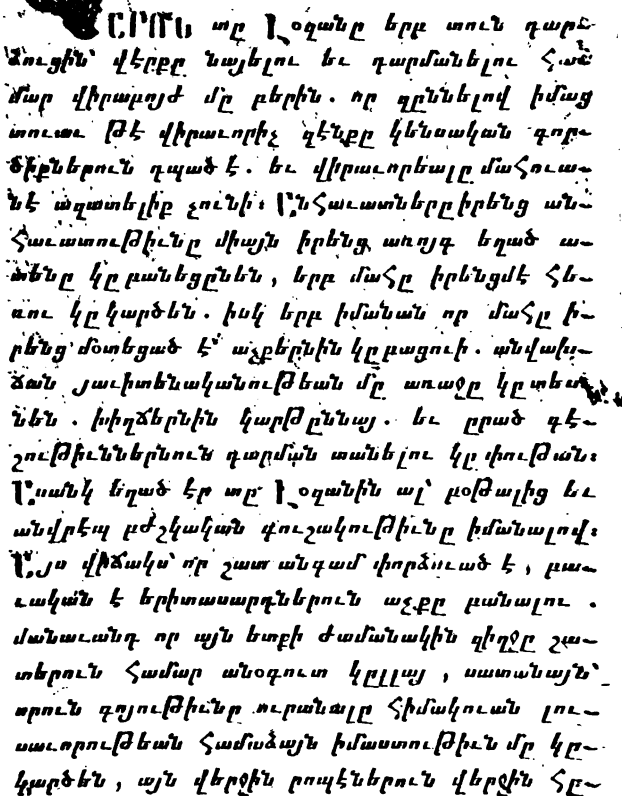 ԸՐԲՈՐ տը Լօզանը երբ տուն դար-
ձուցին՝ վէրքը նայելու եւ դարմանելու Հա-
մար վիրաբոյժ մը բերին. որ զըննելով իմաց
տուաւ թէ վիրաւորիչ զէնքը կենսական գոր-
ծիքներուն դպած է. եւ վիրաւորեալը մահուա-
նէ ազատելիք չունի։ Անհաւատները իրենց ան-
հաւատութիւնը միայն իրենց առոյգ եղած ա-
տենը կը բանեցընեն, երբ մահը իրենցմէ հե-
ռու կը կարծեն. իսկ երբ իմանան որ մահը ի-
րենց մօտեցած է՝ աչքերնին կը բացուի. անվախ-
ճան յաւիտենականութեան մը առաջը կը տես-
նեն. խիղճերնին կարթըննայ. եւ ըրած գէ-
շութիւններնուն դարման տանելու կը փութան։
Ասանկ եղած էր տը Լօզանին ալ՝ մօթալից եւ
անվրէպ բժշկական գուշակութիւնը իմանալով։
Այս վիճակս՝ որ շատ անգամ փորձուած է, բա-
ւական է երիտասարդներուն աչքը բանալու.
մանաւանդ որ այն ետքի ժամանակին զիղջը շա-
տերուն համար անօգուտ կըլլայ, սատանայն՝
որուն գոյութիւնը ուրանալը հիմակուան լու-
սաւորութեան համաձայն իմաստութիւն մը կը-
կարծեն, այն վերջին րոպէներուն վերջին հը-